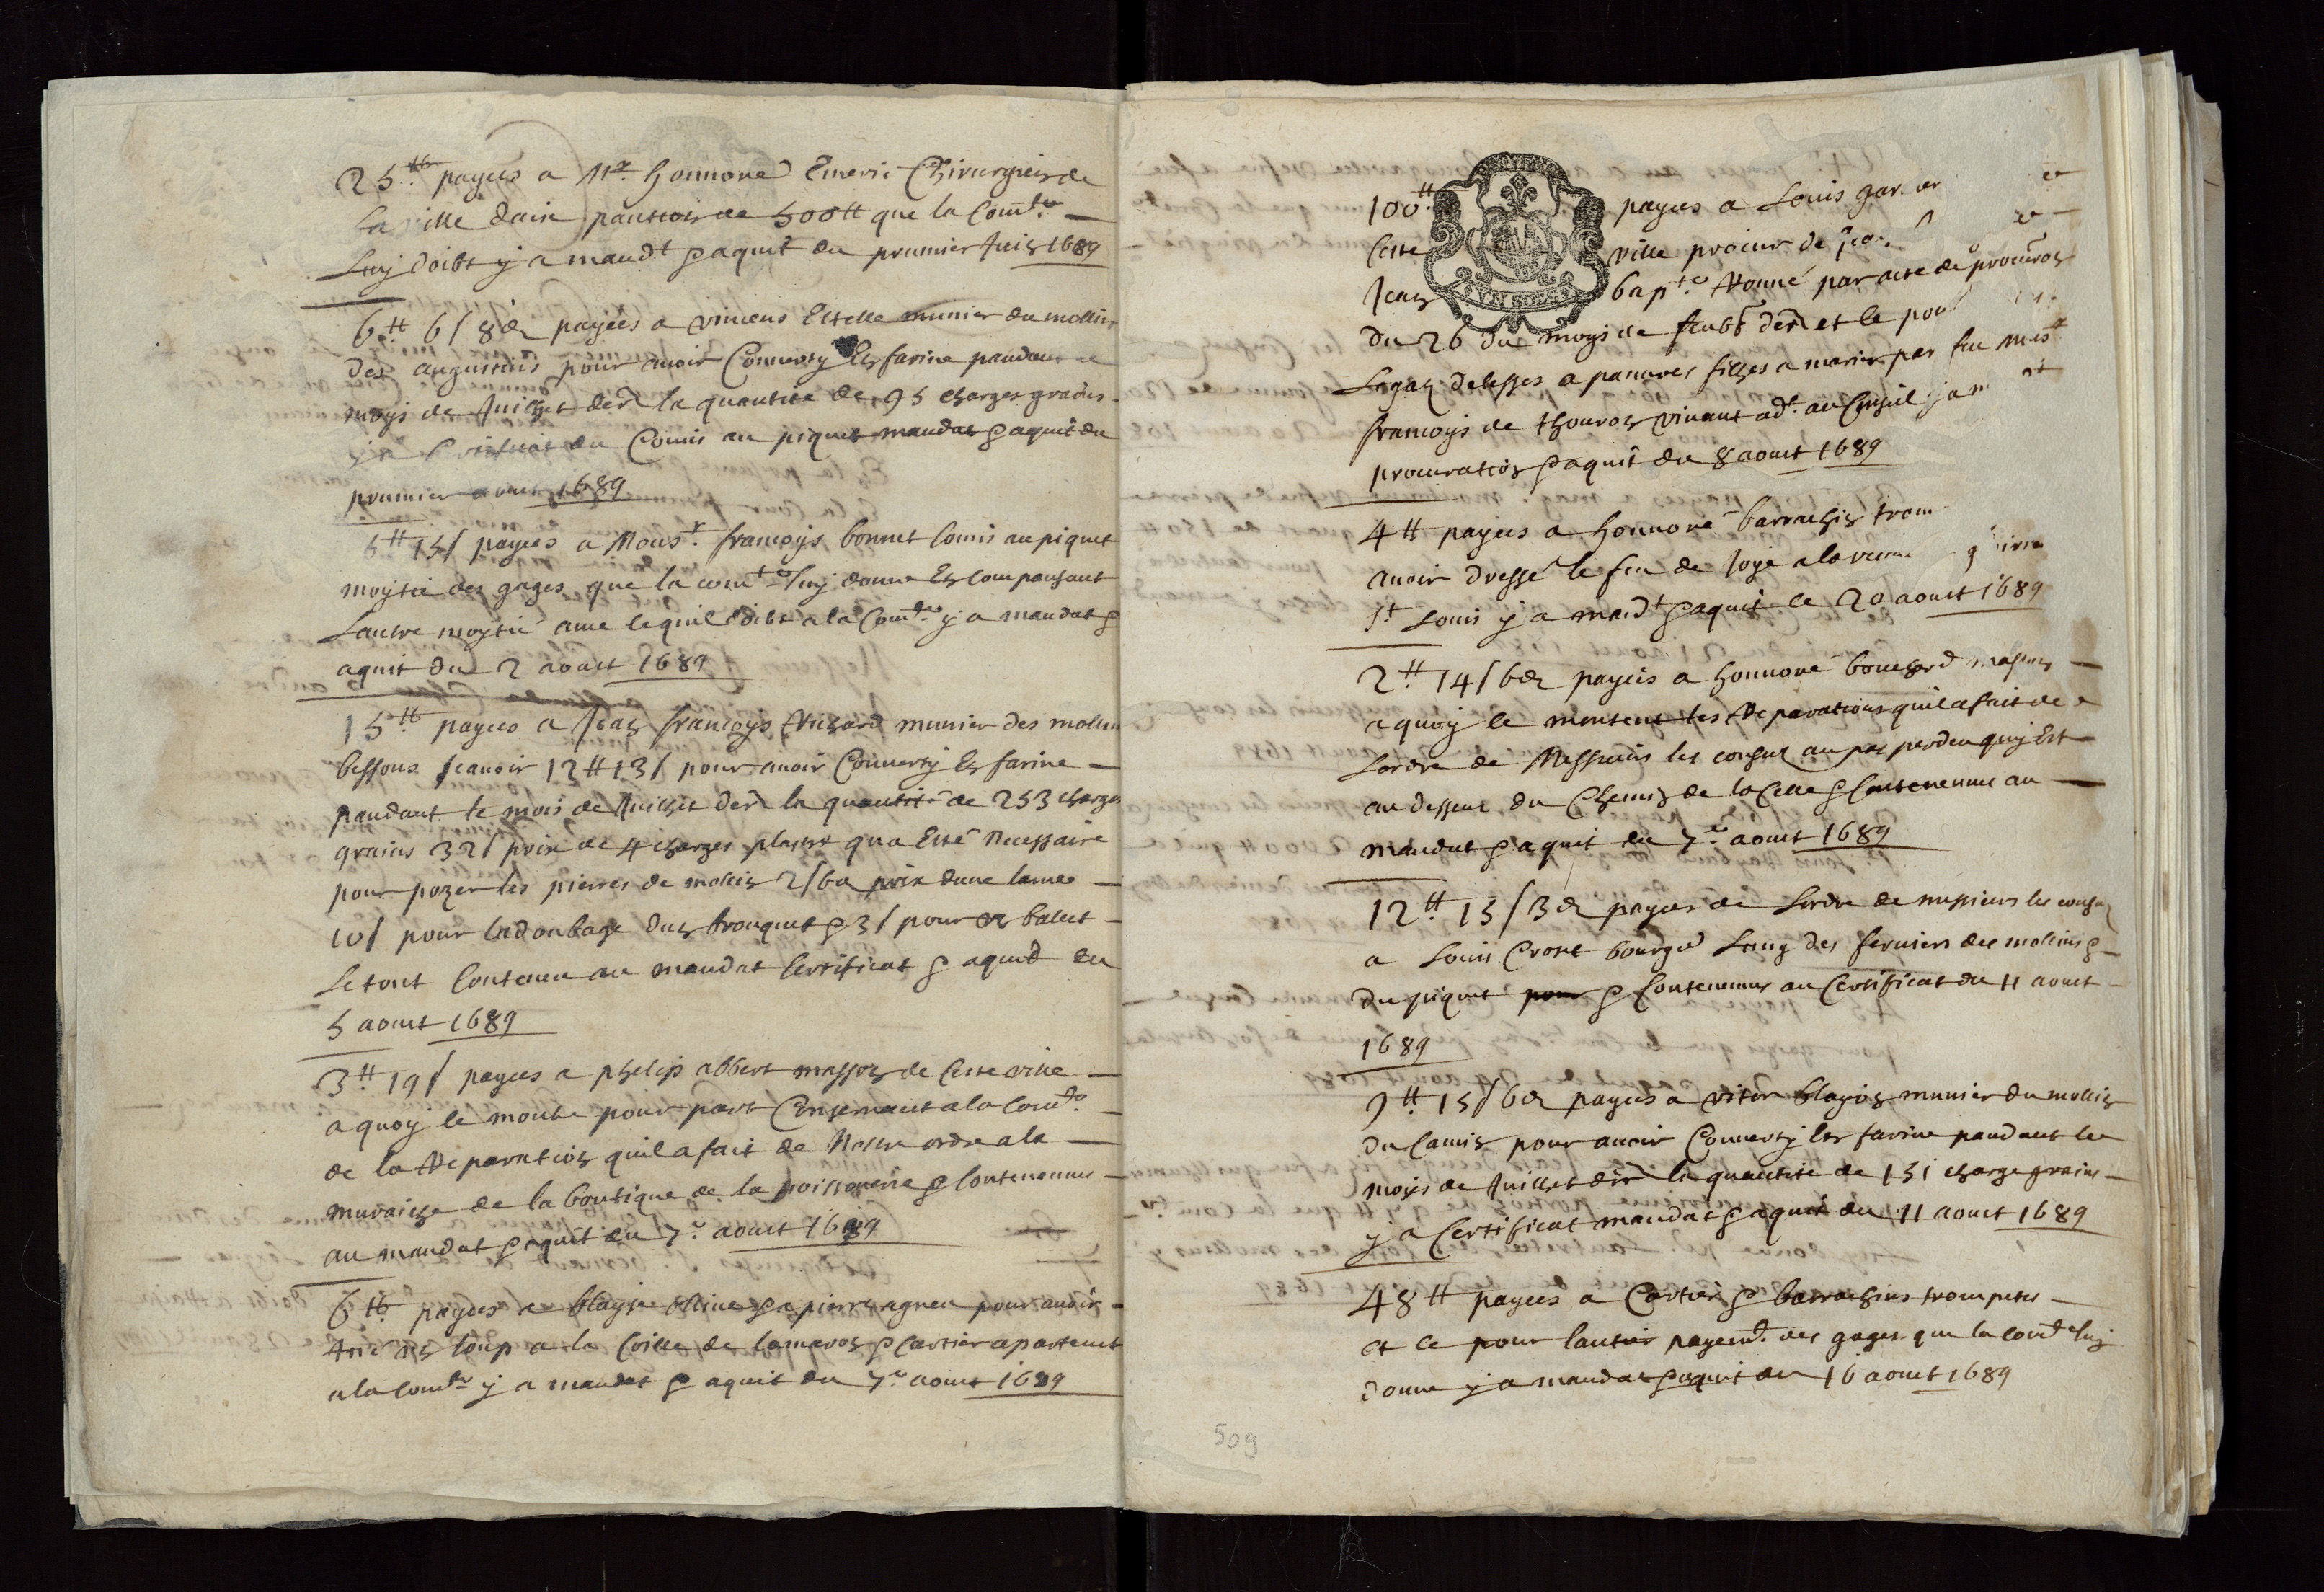 25lt payees a Mre honnoré Emeric Chirurgien de
la ville daix pantion de 500lt que la Comté
luy doibt y a mandt & aquit du prumier Juin 1689
6lt 6s 8d payées a vincens Estelle munier du mollin
des augustins pour auoir Conuerty En farine pandant
moys de Juillet der la quantité de 95 charges grains
y a Certificat du Comis au piquet mandat & aquit du
prumier aoust 1689
5lt 15s payees a Monsr francoys bonnet Comis au piquet
moytié des gages que la comté luy donne En Compansant
Lautre moytié auec ce quil doibt a la Comté y a mandat &
aquit du 2 aoust 1689
15lt payees a Jean francoys Richard munier des molins
bessons scauoir 12lt 13s pour auoir Conuerty En farine
pandant le mois de Juillet der la quantité de 253 charges
grains 32s prix de 4 charges plastre qua Esté Necessaire
pour pozer les pierres de molin 2s 6d prix dune lame
10s pour ladoubage dun brouquet & 3s pour un balest
Le tout Contenu au mandat Certificat & aquit du
5 aoust 1689
3lt 19s payees a phelip abbert masson de Ceste ville
a quoy le monte pour part Consernant a la Comté
de la Reparation quil a fait de Nostre ordre a la
muraihe de la boutique de la poissonerie & Contenenue
au mandat & aquit du 7e aoust 1689
6lt payees a blayse Oliue & a pierre agneu pour auoir
tué un loup a la Coille de lamaron & Cartier apartenent
a la Comté y a mandat & aquit du 7e aoust 1689
100lt payees a Louis
Ceste ville procur de
Jean bapte Honné par acte de procuron
du 26 du moys de der et le pour
Legas delesses a pauures filhes a marier par feu
francoys de thouron viuant adt au Conseil y a
procuration & aquit du 8 aoust 1689
4lt payees a honnoré barrachin trom
auoir dressé le feu de Joye a la
St Louis y a mandt & aquit le 20 aoust 1689
2lt 14s 6d payees a honnoré bouchard masson
a quoy le montent les Reparations quil a fait de
Lordre de Messieurs les consuz au pas perdeu quy Est
au dessus du Chemin de la Celle & Contenenue au
mandat & aquit du 7e aoust 1689
12lt 15s 3d payees de Lordre de messieurs les consuz
a Louis Crost bourgs Lung des fermiers des molins &
du piquet & Contenenue au Certificat du 11 aoust
1689
7lt 15s 6d payees a vitor blayon munier du mollin
du Camin pour auoir Conuerty En farine pandant le
moys de Juillet der la quantité de 151 charge grains
y a Certificat mandat & aquit du 11 aoust 1689
48lt payees a Cartier & barrachins trompetes
et ce pour lantier payemt des gages que la Comté luy
donne y a mandat & aquit du 16 aoust 1689
509